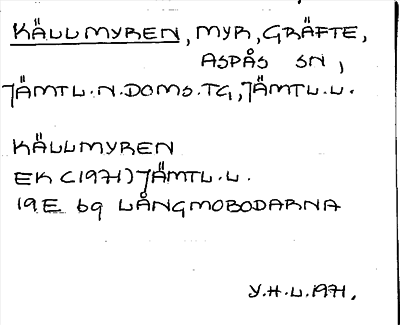 KÄLLMYREN, MYR, GRÄFTE,
ASPÅS SN,
JÄMTL.N.DOMS.TG, JÄMTL.L.
KÄLLMYREN
EK (1971) JÄMTL.L.
19E 6g LÅNGMOBODARNA
Y.H.L.1971.